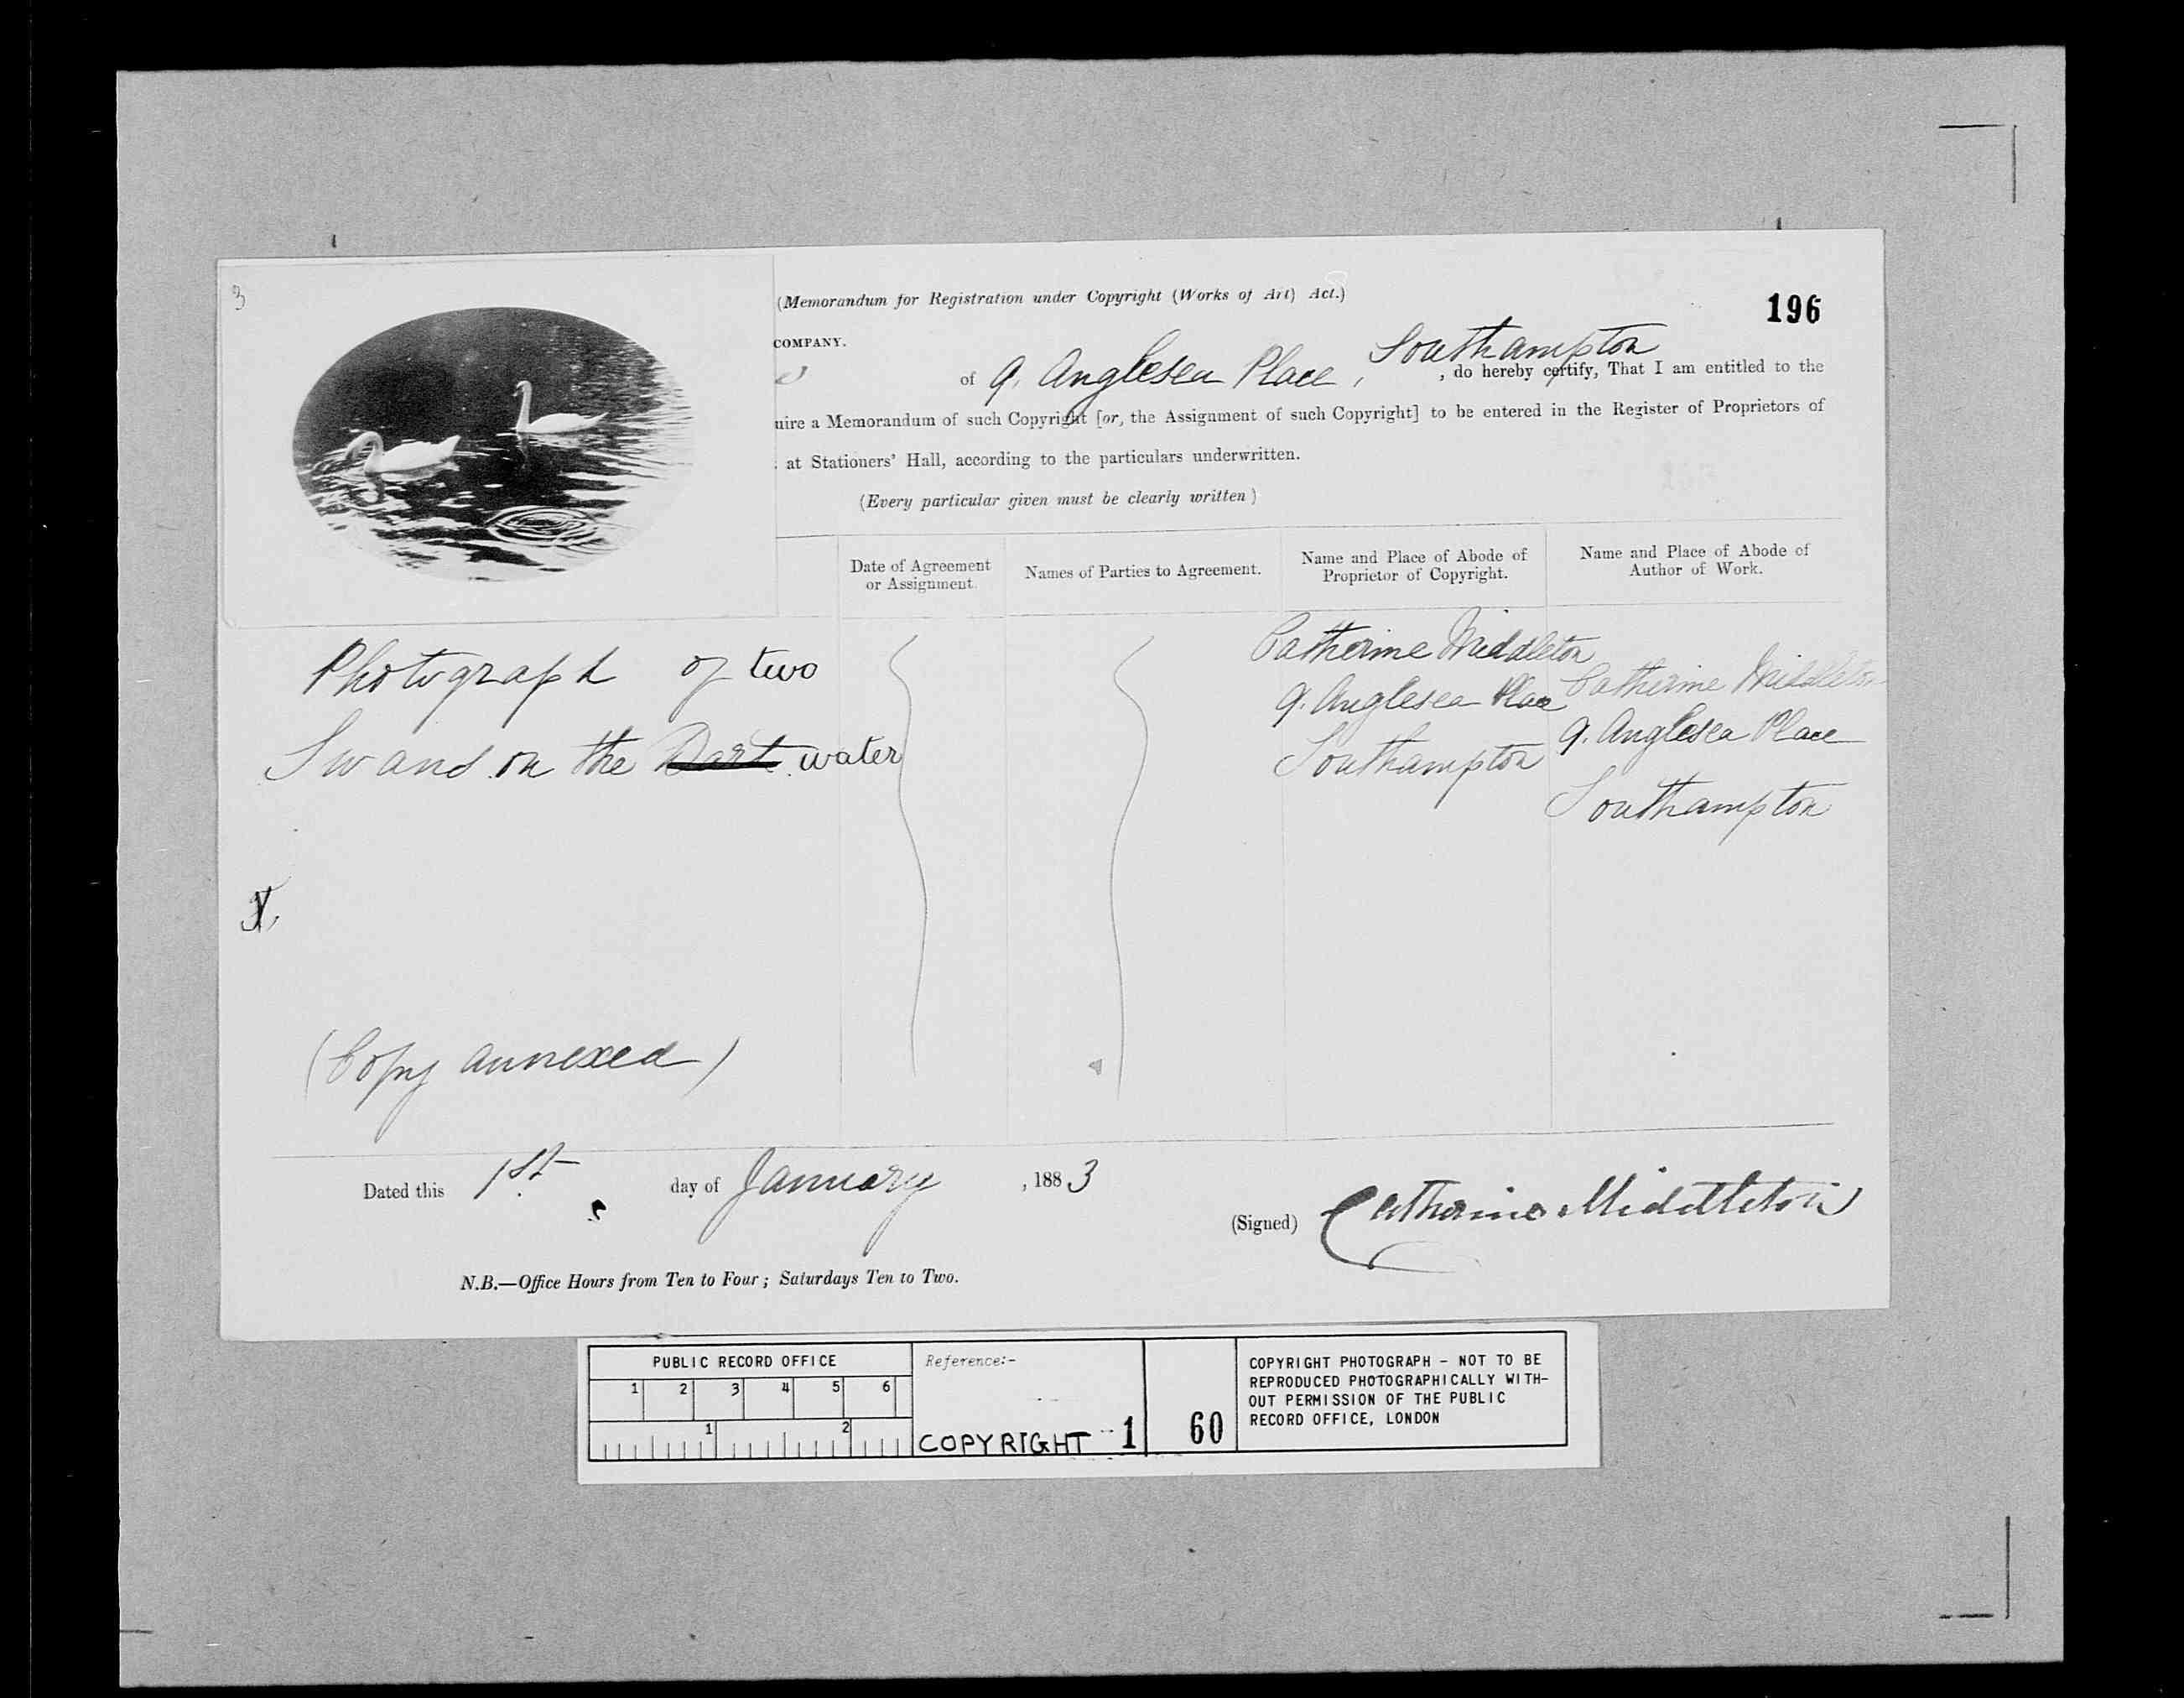 3
(Memorandum for Registration under Copyright (Works of Art) Act.)
196
COMPANY.
of 9. Anglesea Place, Southampton, do hereby certify, That I am entitled to the
uire a Memorandum of such Copyright [or, the Assignment of such Copyright] to be entered in the Register of Proprietors of
at Stationers' Hall, according to the particulars underwritten.
(Every particular given must be clearly written)
Date of Agreement
or Assignment.
Names of Parties to Agreement.
Name and Place of Abode of
Proprietor of Copyright.
Name and Place of Abode of
Author of Work.
Photograph of two
Swans on the Dart water
(Copy annexed)
Catherine Middleton
9. Anglesea Place
Southampton
Catherine Middleton
9. Anglesea Place
Southampton
Dated this 1st day of January, 1883
(Signed) Catherine Middleton
N.B.—Office Hours from Ten to Four; Saturdays Ten to Two.
PUBLIC RECORD OFFICE
1 2 3 4 5 6
1 2
Reference:-
COPYRIGHT 1
60
COPYRIGHT PHOTOGRAPH - NOT TO BE
REPRODUCED PHOTOGRAPHICALLY WITH-
OUT PERMISSION OF THE PUBLIC
RECORD OFFICE, LONDON